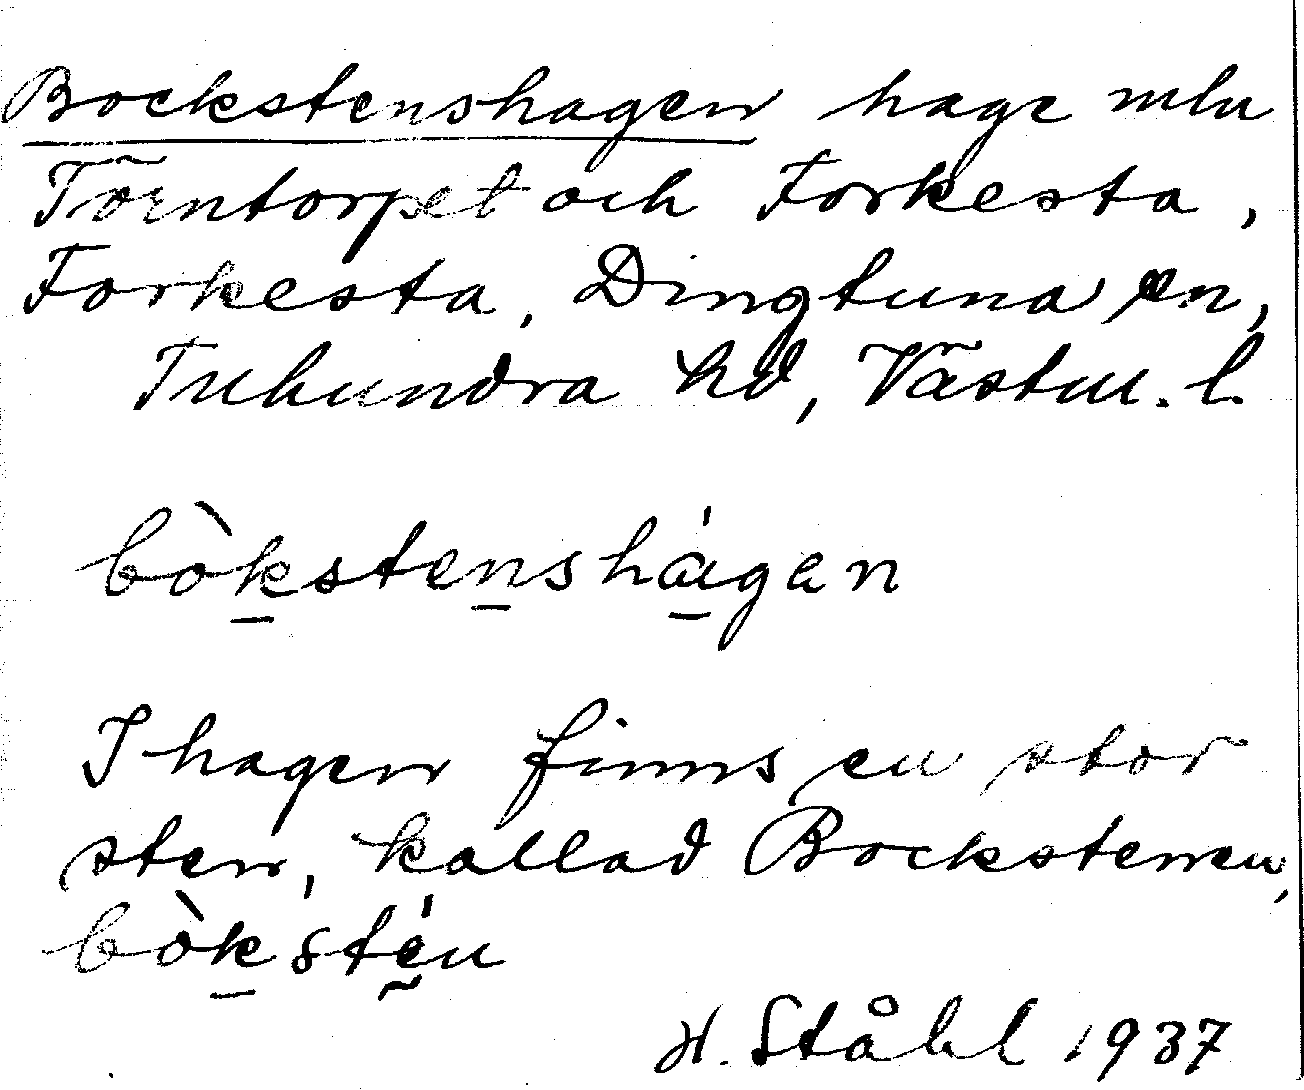 Bockstenshagen hage mln
Törntorpet och Forkesta,
Forkesta, Dingtuna sn,
Tuhundra hd, Västm. l.
bòkstenshágen
I hagen finns en stor
sten, kallad Bockstenen,
bòkstén
H. Ståhl 1937